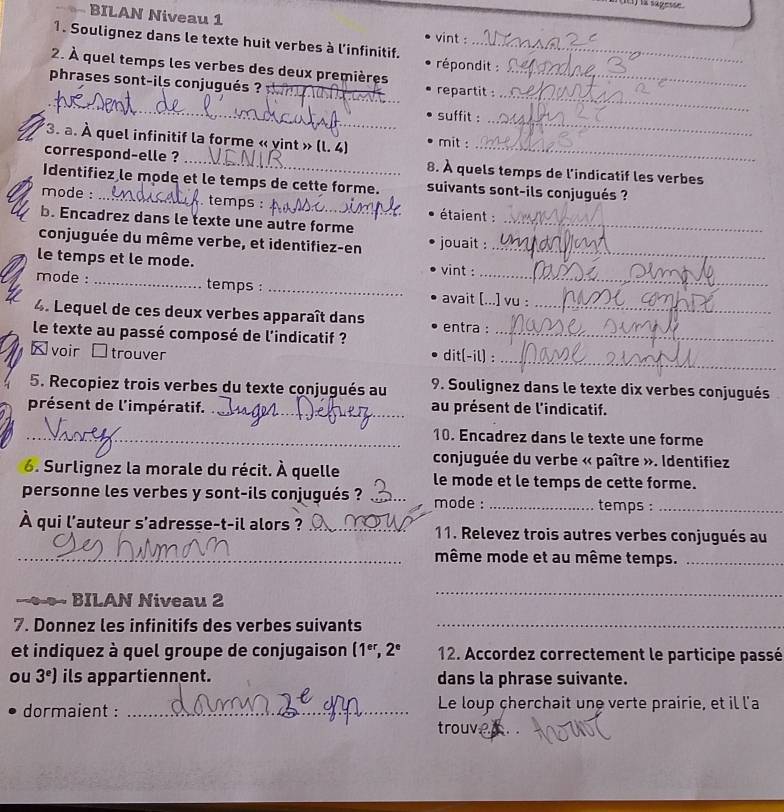 (11) la sagesse.
BILAN Niveau 1
1. Soulignez dans le texte huit verbes à l'infinitif.
2. À quel temps les verbes des deux premières
phrases sont-ils conjugués ?
présent de l'indicatif
3. a. À quel infinitif la forme « vint » (l. 4)
correspond-elle ? VENIR
Identifiez le mode et le temps de cette forme.
mode : indicatif temps : passé simple
b. Encadrez dans le texte une autre forme
conjuguée du même verbe, et identifiez-en
le temps et le mode.
mode : temps :
4. Lequel de ces deux verbes apparaît dans
le texte au passé composé de l'indicatif ?
☒ voir ☐ trouver
5. Recopiez trois verbes du texte conjugués au
présent de l'impératif. Juger
6. Surlignez la morale du récit. À quelle
personne les verbes y sont-ils conjugués ? 3
À qui l'auteur s'adresse-t-il alors ? a nous
BILAN Niveau 2
7. Donnez les infinitifs des verbes suivants
et indiquez à quel groupe de conjugaison (1er, 2e
ou 3e) ils appartiennent.
• dormaient : 3e
• vint : 2e
• répondit : 3e
• repartit : 2e
• suffit :
• mit :
8. À quels temps de l'indicatif les verbes
suivants sont-ils conjugués ?
• étaient :
• jouait :
• vint : passé simple
• avait [...] vu :
• entra : passe simple
• dit(-il) : passe simple
9. Soulignez dans le texte dix verbes conjugués
au présent de l'indicatif.
10. Encadrez dans le texte une forme
conjuguée du verbe « paître ». Identifiez
le mode et le temps de cette forme.
mode : temps :
11. Relevez trois autres verbes conjugués au
même mode et au même temps.
12. Accordez correctement le participe passé
dans la phrase suivante.
Le loup cherchait une verte prairie, et il l'a
trouv